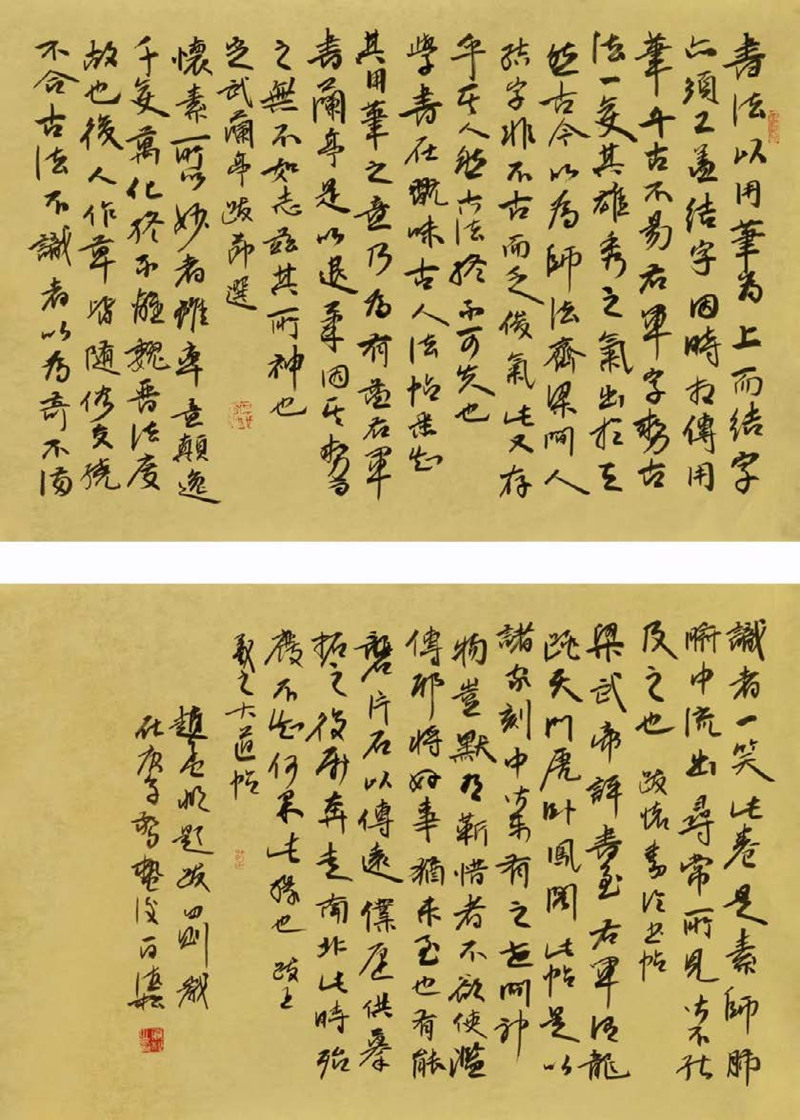 書法以用筆為上而結字
亦須工蓋結字因時相傳用
筆千古不易右軍字勢古
法一變其雄秀之氣出於天
然古今以為師法齊梁間人
結字非不古而乏俊氣此又存
乎其人然古法終不可失也
學書在翫味古人法帖悉知
其用筆之意乃為有益右軍
書蘭亭是以退筆因其勢為
之無不如志茲其所神也
定武蘭亭跋節選
懷素所以妙者雖率意顛逸
千變萬化終不離魏晉法度
故也後人作草皆隨俗交繞
不合古法不識者以為奇不滿
識者一笑此卷是素師肺
腑中流出尋常所見皆不能
及之也 跋懷素論書帖
梁武帝評書至右軍謂龍
跳天門虎臥鳳閣此帖是以
諸家刻中皆有之世間神
物豈默有靳惜者不欲使濫
傳耶將好事猶未至也有能
礱片石以傳遠僕願供摹
拓之役所奔走南北此時殆
廢不知何果此緣也 跋王
羲之大道帖
趙孟頫題跋四則
庚子驚蟄後